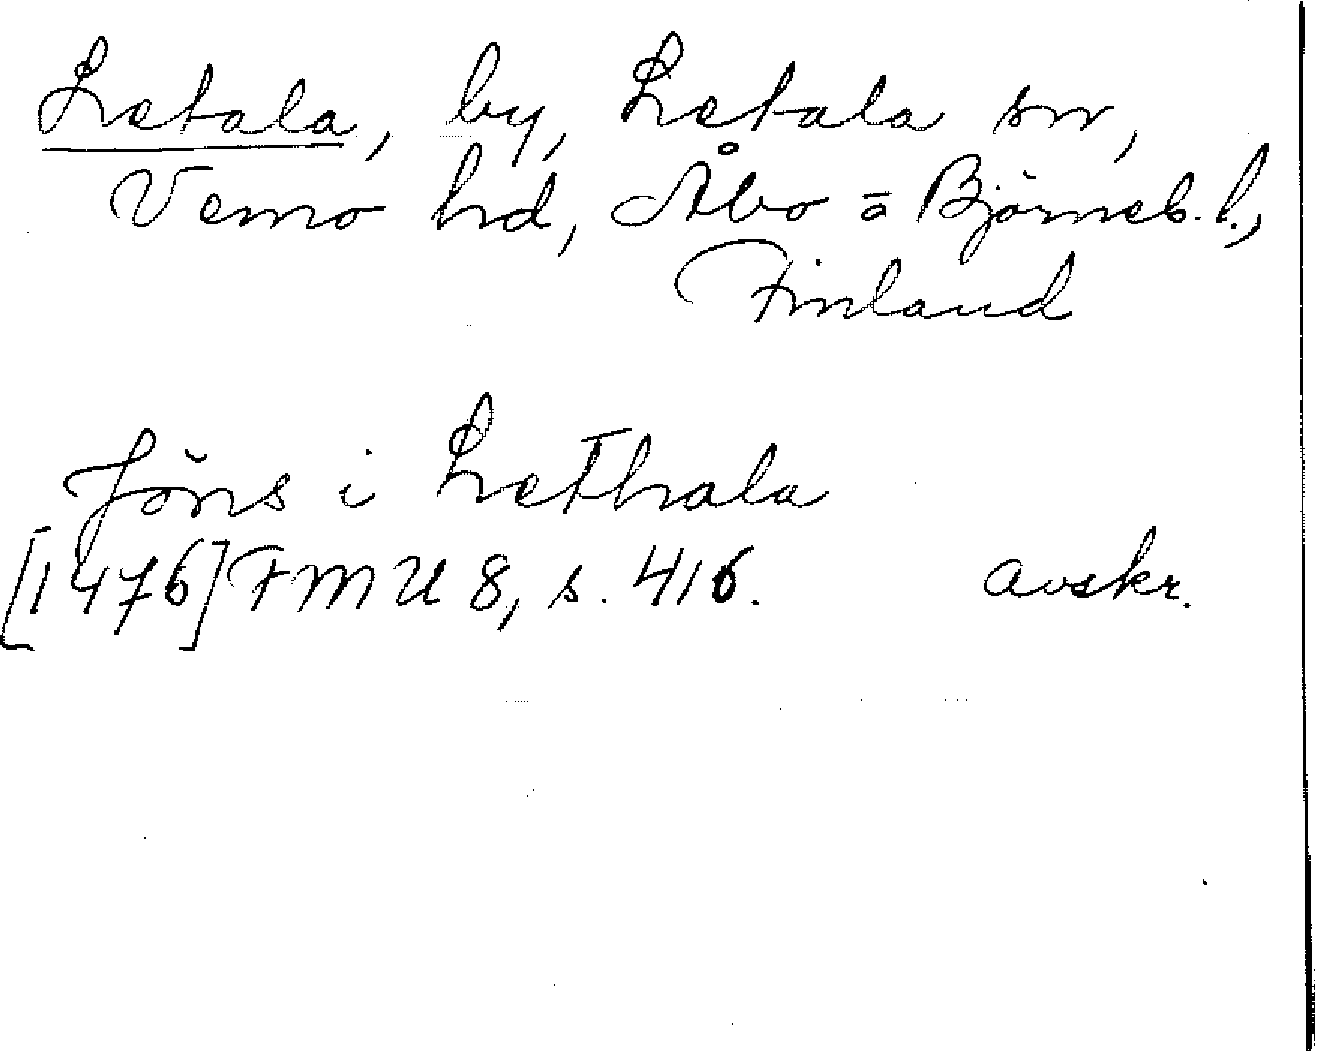 Letala, by, Letala sn,
Vemo hd, Åbo o Björneb. l.,
Finland
Jöns i Lethala
[1476] FMU 8, s. 416. avskr.